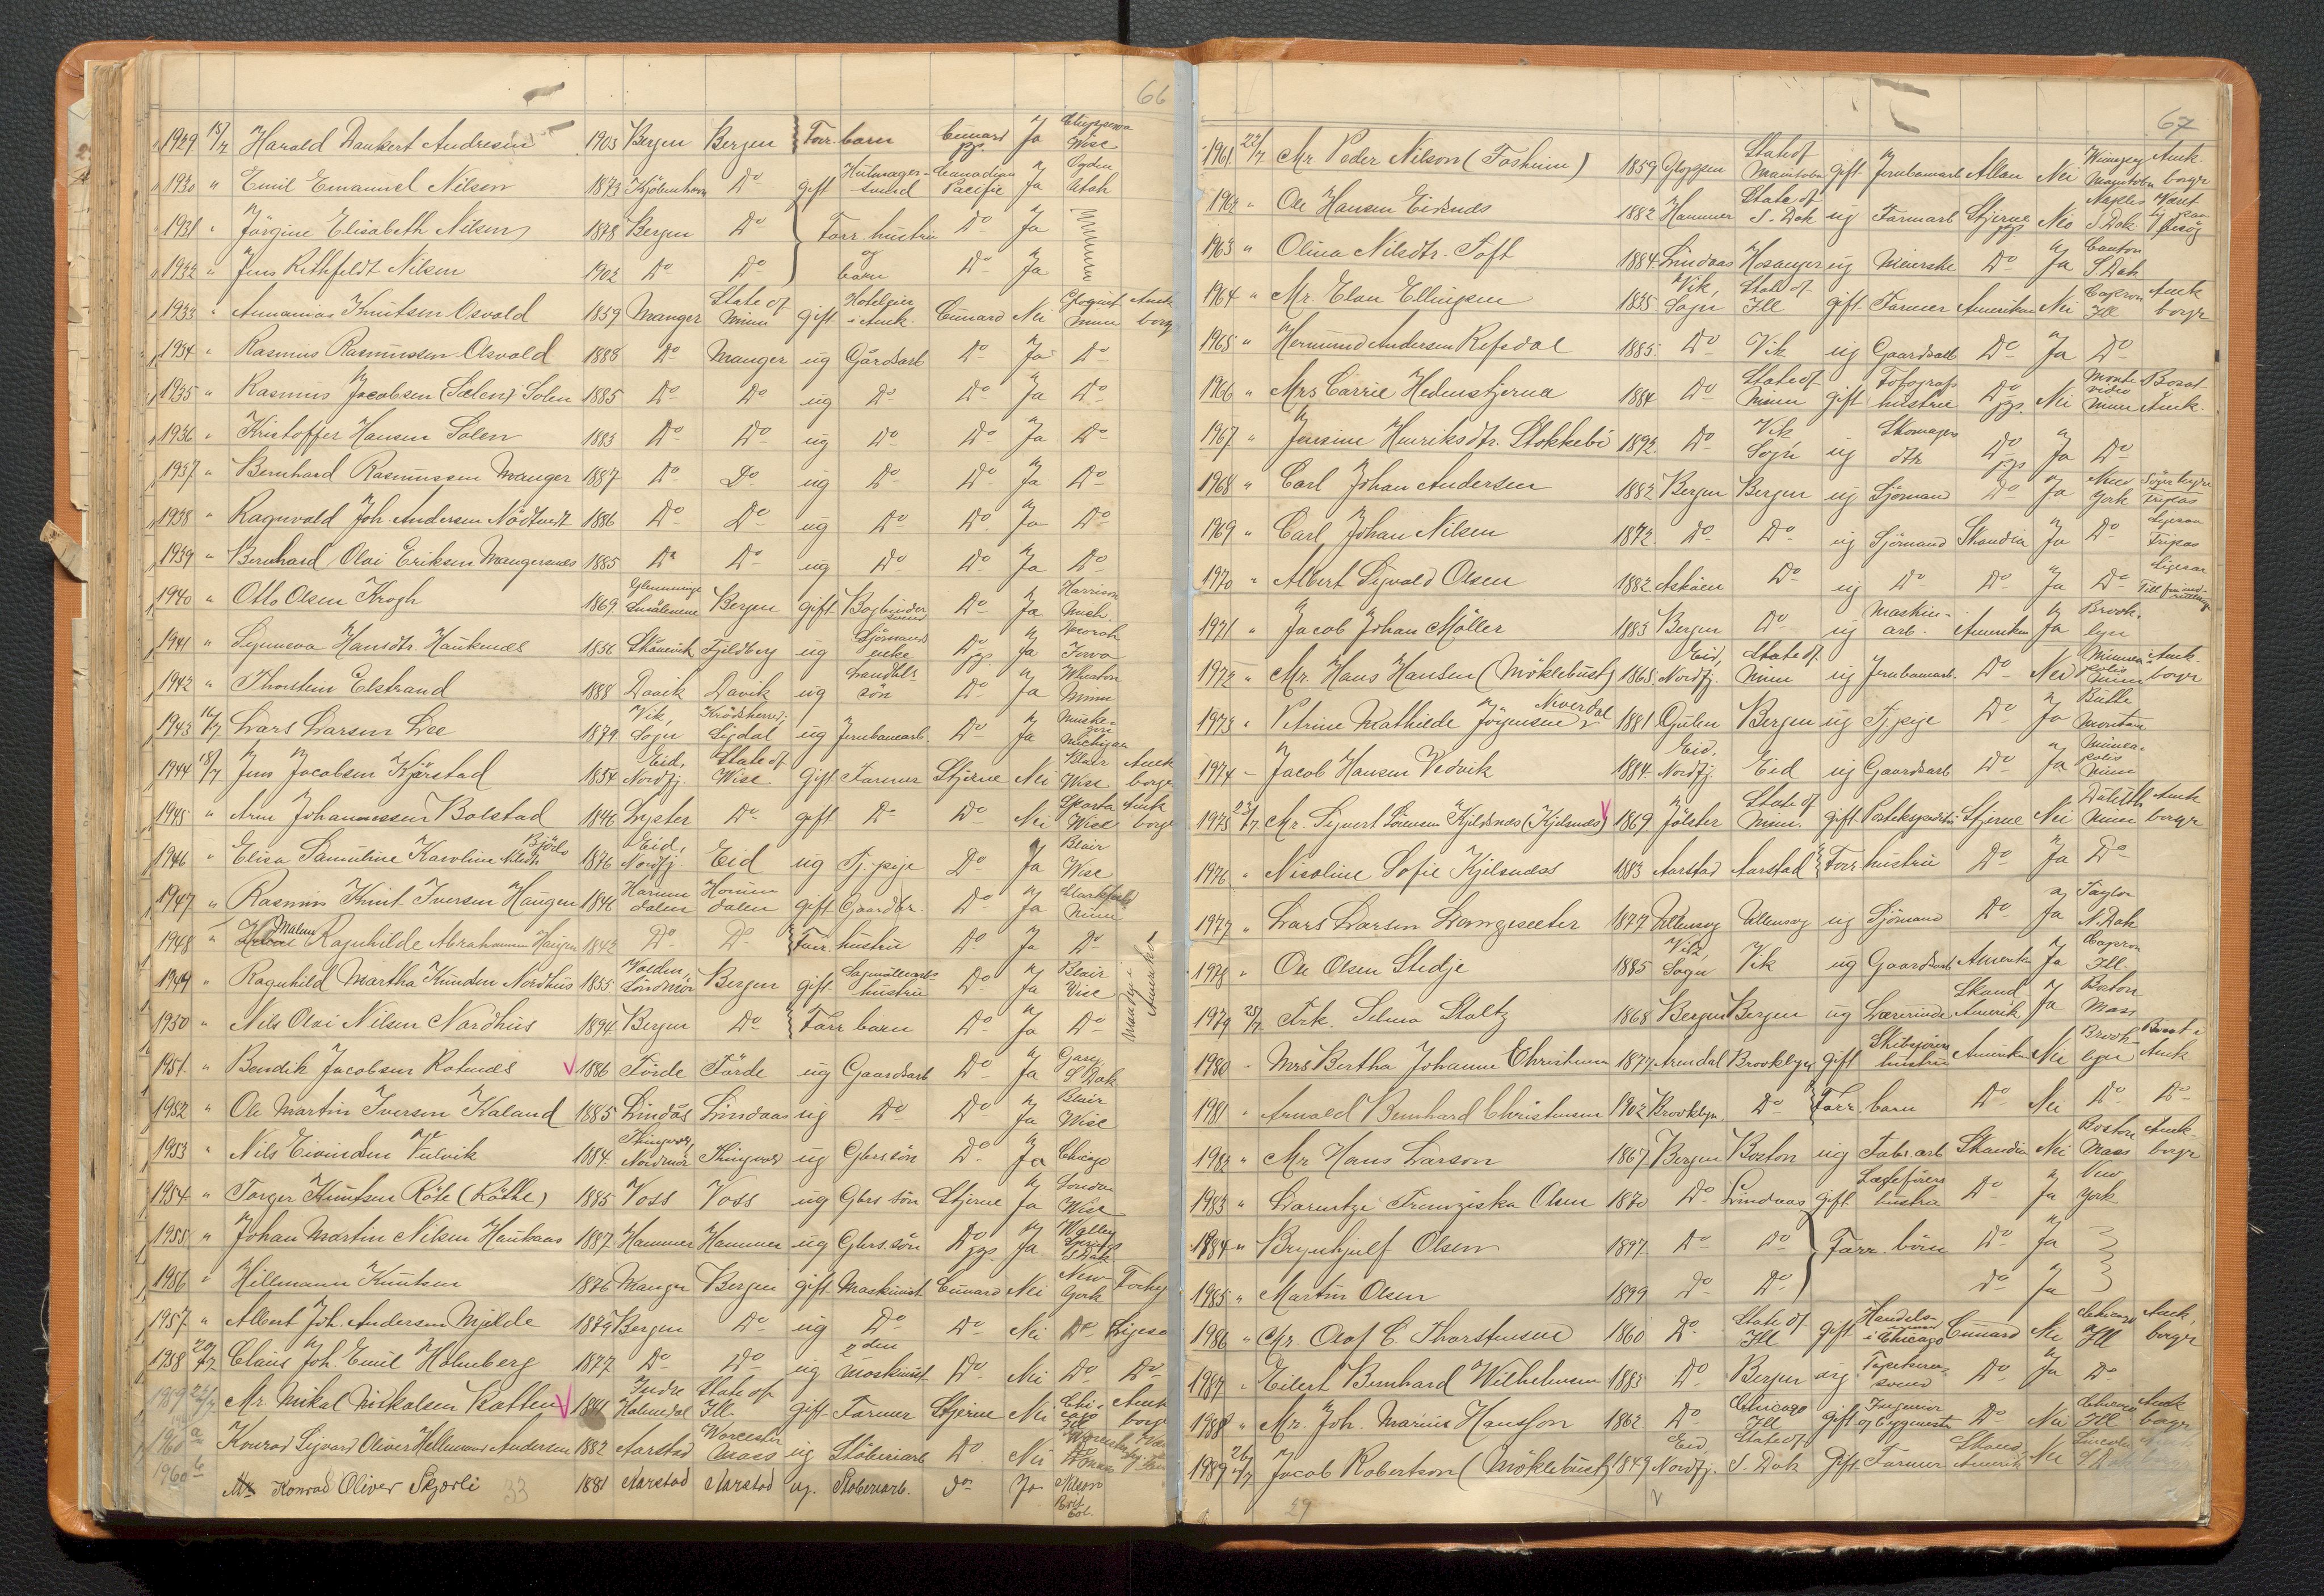 66
1929 15/7 Harald Dankert Andresen 1903 Bergen Bergen Forr. barn Cunard pp. Ja Chippewa Wisc
1930 " Emil Emanuel Nilsen 1873 Kjöbenhavn Do gift svend Canadian Pacific Ja Ogden Utah
1931 " Jörgine Elisabeth Nilsen 1878 Bergen Do Forr. hustru Do Ja
1932 " Jens Rithfeldt Nilsen 1902 Do Do og barn Do Ja
1933 " Annanias Knutsen Osvold 1859 Manger State of Minn gift Hoteleier i Amk. Cunard Nei Minn Amk borger
1934 " Rasmus Rasmussen Osvold 1888 Do Manger ug Gårdsarb Do Ja Do
1935 " Rasmus Jacobsen (Sælen) Solen 1885 Do Do ug Do Do Ja Do
1936 " Kristoffer Hansen Solen 1883 Do Do ug Do Do Ja Do
1937 " Bernhard Rasmussen Manger 1887 Do Do ug Do Do Ja Do
1938 " Ragnvald Joh. Andersen Nödtvedt 1886 Do Do ug Do Do Ja Do
1939 " Bernhard Olai Eriksen Mangersnes 1885 Do Do ug Do Do Ja Do
1940 " Otto Olsen Krogh 1869 Glemminge Smålenene Bergen gift Bogbinder svend Do Ja Harrison
1941 " Synneva Hansdtr. Haukenæs 1856 Skånevik Fjeldberg ug Sjömands enke Do pp. Ja Iowa
1942 " Thorstein Elstrand 1888 Davik Davik ug Landhdl. sön Do Ja Wheaton Minn
1943 16/7 Lars Larsen Lee 1879 Vik, Sogn Krödsherred, Sigdal ug Jernbanearb. Do Ja Muskegon Michigan
1944 18/7 Jens Jacobsen Kjörstad 1854 Eid, Nordfj. State of Wisc. Gift Farmer Stjerne Nei Blair Wisc Amk borger
1945 " Arne Johannessen Bolstad 1846 Lyster Do gift Do Do Nei Sparta Wisc Amk borger
1946 " Elisa Samuline Karoline Nilsdtr Björlo 1876 Eid, Nordfj. Eid ug Tj. pige Do Ja Blair Wisc
1947 " Rasmus Knut Iversen Haugen 1846 Hornindalen Hornindalen gift Gaardbr. Do Ja Clarkfield Minn
1948 " Malene Ragnhilde Abrahamsen Haugen 1842 Do Do Forr. hustru Do Ja Do
1949 " Ragnhild Martha Knudsen Nordhus 1855 Volden, Söndmör Bergen gift Sagmöllearb. hustru Do Ja Blair Wisc Mand i Amerika
1950 " Nils Olai Nilsen Nordhus 1894 Bergen Do Forr barn Do Ja Do
1951 " Bendik Jacobsen Rotnæs 1886 Förde Förde ug Gaardsarb Do Ja Gary S Dak
1952 " Ole Martin Iversen Kaland 1885 Lindås Lindaas ug Do Do Ja Blair Wisc
1953 " Nils Eivindsen Vulvik 1884 Thingvold, Nordmör Thingvold ug Gbrs sön Do Ja Chicago
1954 " Torger Knutsen Röte (Röthe) 1885 Voss Voss ug Gbrs sön Stjerne Ja London Wisc
1955 " Johan Martin Nilsen Haukaas 1887 Hammer Hammer ug Gbrs. sön Do pp. Ja Walley Springs S Dak
1956 " Hillmann Knutsen 1876 Manger Bergen gift Maskinist Cunard Nei New York
1957 " Albert Joh. Andersen Mjelde Bergen Do ug Do Do Nei Do Ligesaa
1958 20/7 Claus Joh. Emil Holmberg 1877 Do Do ug 2den Maskinist Do Nei Do Do
1959 22/7 Mr. Mikal Mikalsen Botten 1841 Indre Holmedal State of Ill gift Farmer Stjerne Nei Chicago Amk borger
1960 a Konrad Sigvard Oliver Hellemund Andersen 1882 Aarstad Worcester Mass ug Stöberiarb Do Nei
1960 b Mr Konrad Oliver Skjærli 33 1881 Aarstad Aarstad ug. Stöberiarb. do Ja Nelson Brit. Col.
67
1961 22/7 Mr Peder Nilson (Toshiem) 1859 Gloppen State of Manitoba gift Jernbanearb Allan Nei Winnipeg Manitoba Amk. borger
1962 " Ole Hansen Eidsnes 1882 Hammer State of S. Dak ug Farmarb Stjerne pp. Nei Naples S Dak
1963 " Olina Nilsdtr. Toft 1884 Lindaas Hosanger ug Meierske Do Ja Canton S Dak
1964 " Mr. Elan Ellingsen 1835 Vik, Sogn State of Ill gift Farmer Amerikan Nei Capron Ill Amk borger
1965 " Hermund Andersen Refsdal 1885 Do Vik ug Gaardsarb Do Ja Do
1966 " Mrs Carrie Hedenstjerna 1884 Do State of Minn gift Fotografs hustru Do pp. Nei Montevideo Minn Bosat Amk.
1967 " Jensine Henriksdtr. Stokkebö 1892 Do Vik Sogn ug Skomagers dtr Do pp Ja Do
1968 " Carl Johan Andersen 1882 Bergen Bergen ug Sjömand Do Ja New York
1969 " Carl Johan Nilsen 1872 do Do ug Sjömand Skandia Ja Do Ligesaa Fripas
1970 " Albert Sigvald Olsen 1882 Asköen Do ug Do Do Ja Do Ligesaa
1971 " Jacob Johan Möller 1883 Bergen Do ug Maskinarb. Amerikan Ja Brooklyn
1972 " Mr. Hans Hansen (Möklebust) 1865 Eid, Nordfj. State of Minn ug Jernbanearb. Do Nei Minneapolis Minn Amk. borger
1973 " Petrine Mathilde Jörgensen Nverdal 1881 Gulen Bergen ug Tj. pige Do Ja Butte Montana
1974 - Jacob Hansen Vedvik 1884 Eid, Nordfj. Eid ug Gaardsarb Do Ja Minneapolis Minn
1975 23/7 Mr. Sigvert Sörensen Kjeldsnæs (Kjelsnæs) 1869 Jölster State of Minn. gift Postekspeditör Stjerne Nei Duluth Minn Amk borger
1976 " Nicoline Sofie Kjelsnæs 1883 Aarstad Aarstad Forr hustru Do Ja Do
1977 " Lars Larsen Langesæter 1877 Ullensvg Ullensvg ug Sjömand Do Ja Taylor N. Dak
1978 " Ole Olsen Stedje 1885 Vik, Sogn Vik ug Gaardsarb Amerik Ja Capron Ill.
1979 25/7 Frk. Selma Stoltz 1868 Bergen Bergen ug Lærerinde Skand. Amerik Ja Boston Mass
1980 - Mrs Bertha Johanne Christensen 1877 Arendal Brooklyn gift Skibsförers hustru Amerikan Nei Brooklyn Bosat i Amk
1981 " Arnold Bernhard Christensen 1902 Brooklyn Do Forr. barn Do Nei Do Do
1982 " Mr Hans Larson 1867 Bergen Boston ug Fabr. arb Skandia Nei Boston Mass Amk- borger
1983 " Larentze Franziska Olsen 1870 Do Lindaas gift hustru Do Ja New York
1984 " Brynhjulf Olsen 1897 Do Do Forr. börn Do Ja
1985 " Martin Olsen 1899 Do Do do Ja
1986 " Mr Olaf C. Thorstensen 1860 Do State of Ill gift Handelsmand i Chicago Cunard Nei Chicago Ill Amk. borger
1987 " Eilert Bernhard Wilhelmsen 1883 Do Bergen ug Tapetserer svend Do Ja Do
1988 " Mr. Joh. Marius Hansson 1862 Do Chicago Ill gift Ingeniör og bygmester Do Nei Chicago Ill Amk borger
1989 26/7 Jacob Robertson (Möklebust) 1849 Eid, Nordfj. State of S. Dak Gift Farmer Skand. Amerik Nei Lincoln S Dak
29